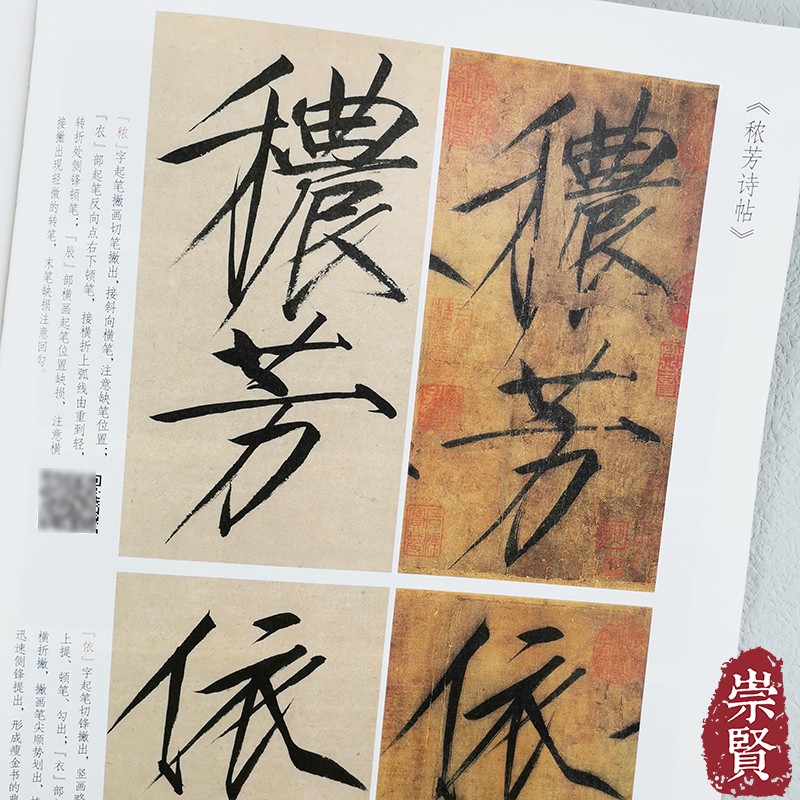 《秾芳诗帖》
穠芳
穠芳
『秾』字起笔撇画切笔撇出，接斜向横笔，注意缺笔位置；
『农』部起笔反向点右下顿笔，接横折上弧线由重到轻，
转折处侧锋顿笔；『辰』部横画起笔位置缺损，注意横
接撇出现轻微的转笔，末笔缺损注意回勾。
依
依
『依』字起笔切锋撇出，竖画略
上提、顿笔、勾出；『衣』部
横折撇，撇画笔尖顺势划出，
迅速侧锋提出，形成瘦金书的典
崇賢